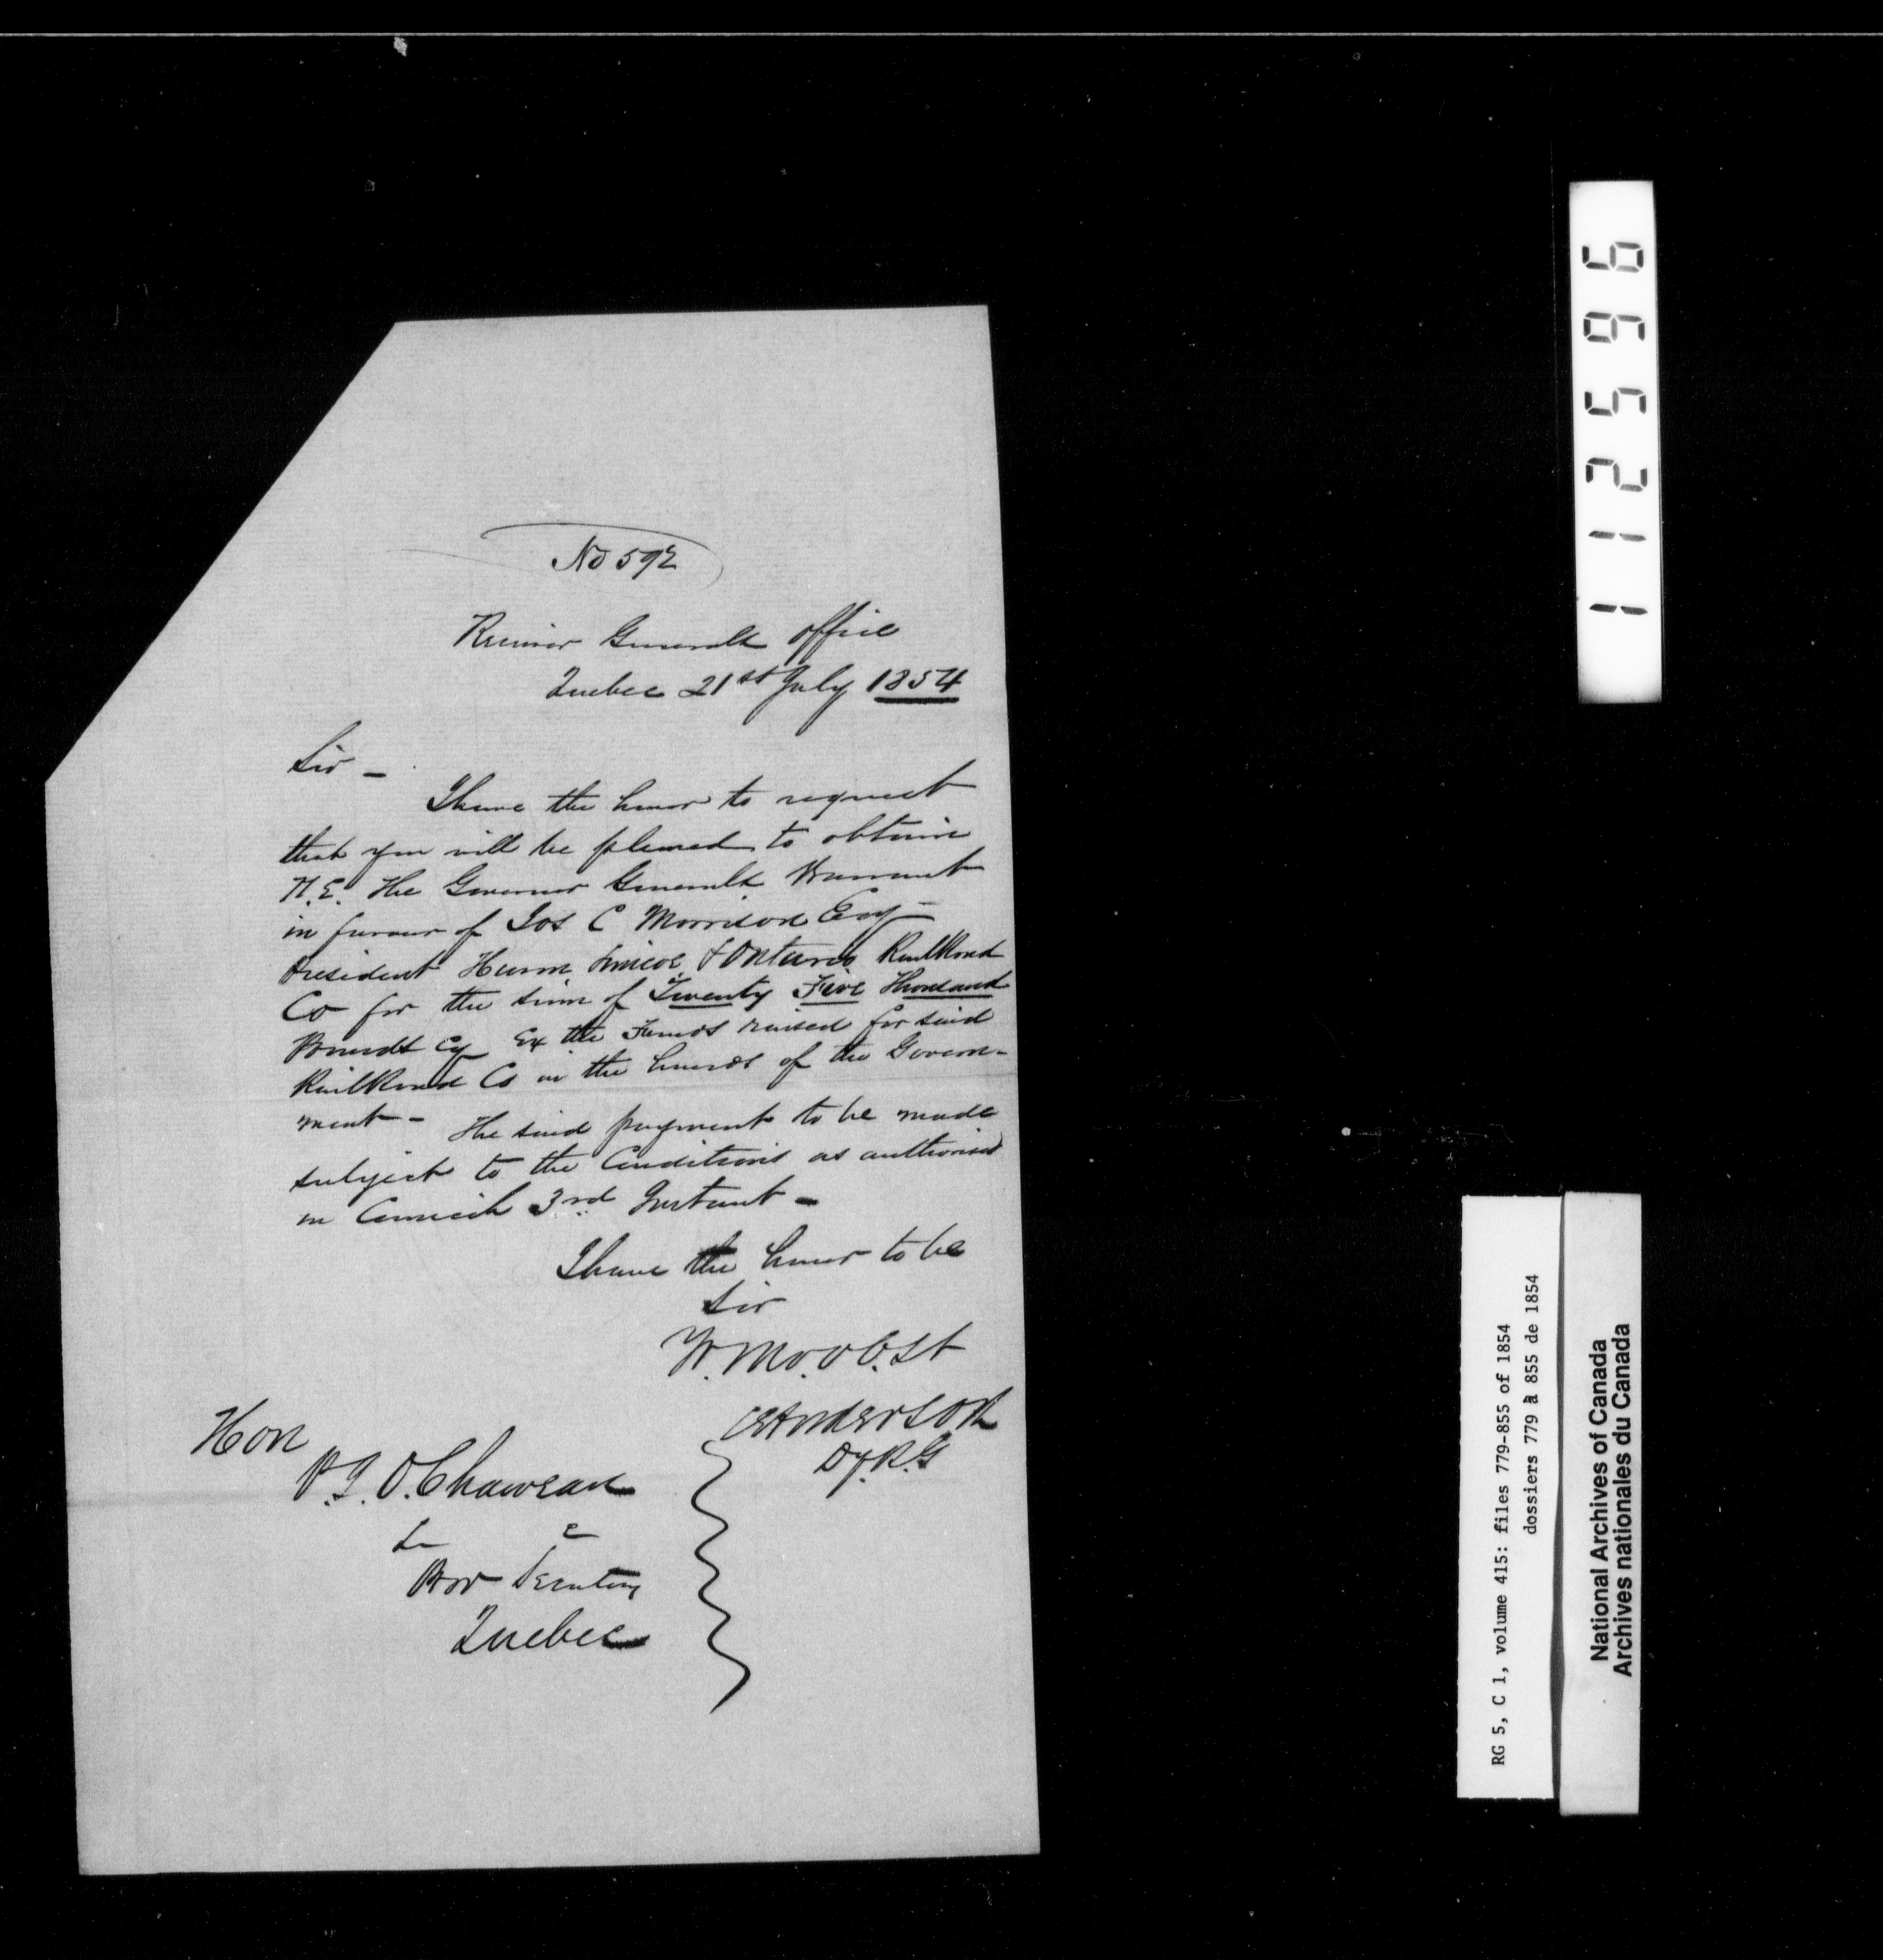 No 592
Receiver Generals Office
Quebec 21st July 1854
Sir -
I have the honor to request
that you will be pleased to obtain
H.E. The Governor Generals Warrant
in favour of Jos C Morrison Esq -
President Huron Simcoe & Ontario RailRoad
Co for the sum of Twenty Five Thousand
Pounds Cy Ex the Funds raised for said
RailRoad Co in the hands of the Govern-
ment - The said payment to be made
subject to the Conditions as authorised
in Council 3rd Instant -
I have the honor to be
Sir
Yr. Mo. Ob. St
CE Anderson
Dy. R. G
Hon
P. J. O. Chauveau
Prov Secretary
Quebec
112596
RG 5, C 1, volume 415: files 779-855 of 1854
dossiers 779 à 855 de 1854
National Archives of Canada
Archives nationales du Canada